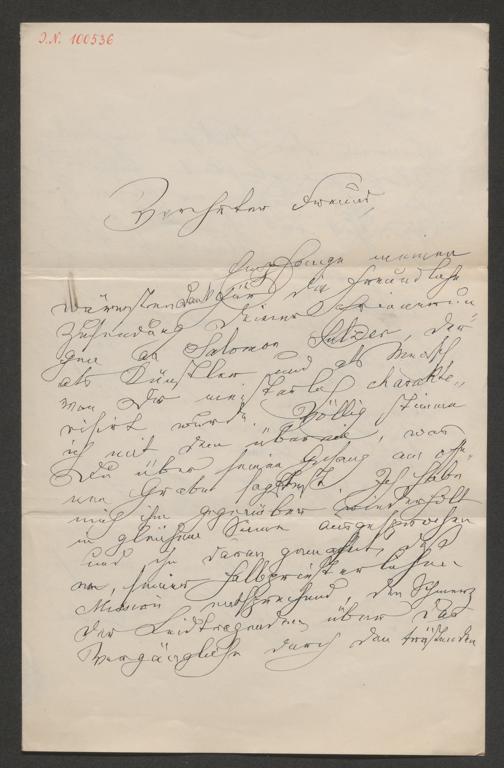 I.N. 100536
Verehrter Freund,
Empfange meinen
wärmsten Dank für die freundliche
Zusendung Deiner Erinnerun
gen an Salomon Sulzer, der
als Künstler und als Mensch
von Dir meisterlich charakte„
risirt wurde. Völlig stimme
ich mit dem überein, was
Du über seinen Gesang am offe„
nen Grabe sagtest. Ich habe
mich ihm gegenüber wiederholt
in gleichem Sinne ausgesprochen
und ihn daran gemahnt, daß
er, seiner halbpriesterlichen
Mission entsprechend, den Schmerz
der Leidtragenden über das
Vergängliche durch den tröstenden